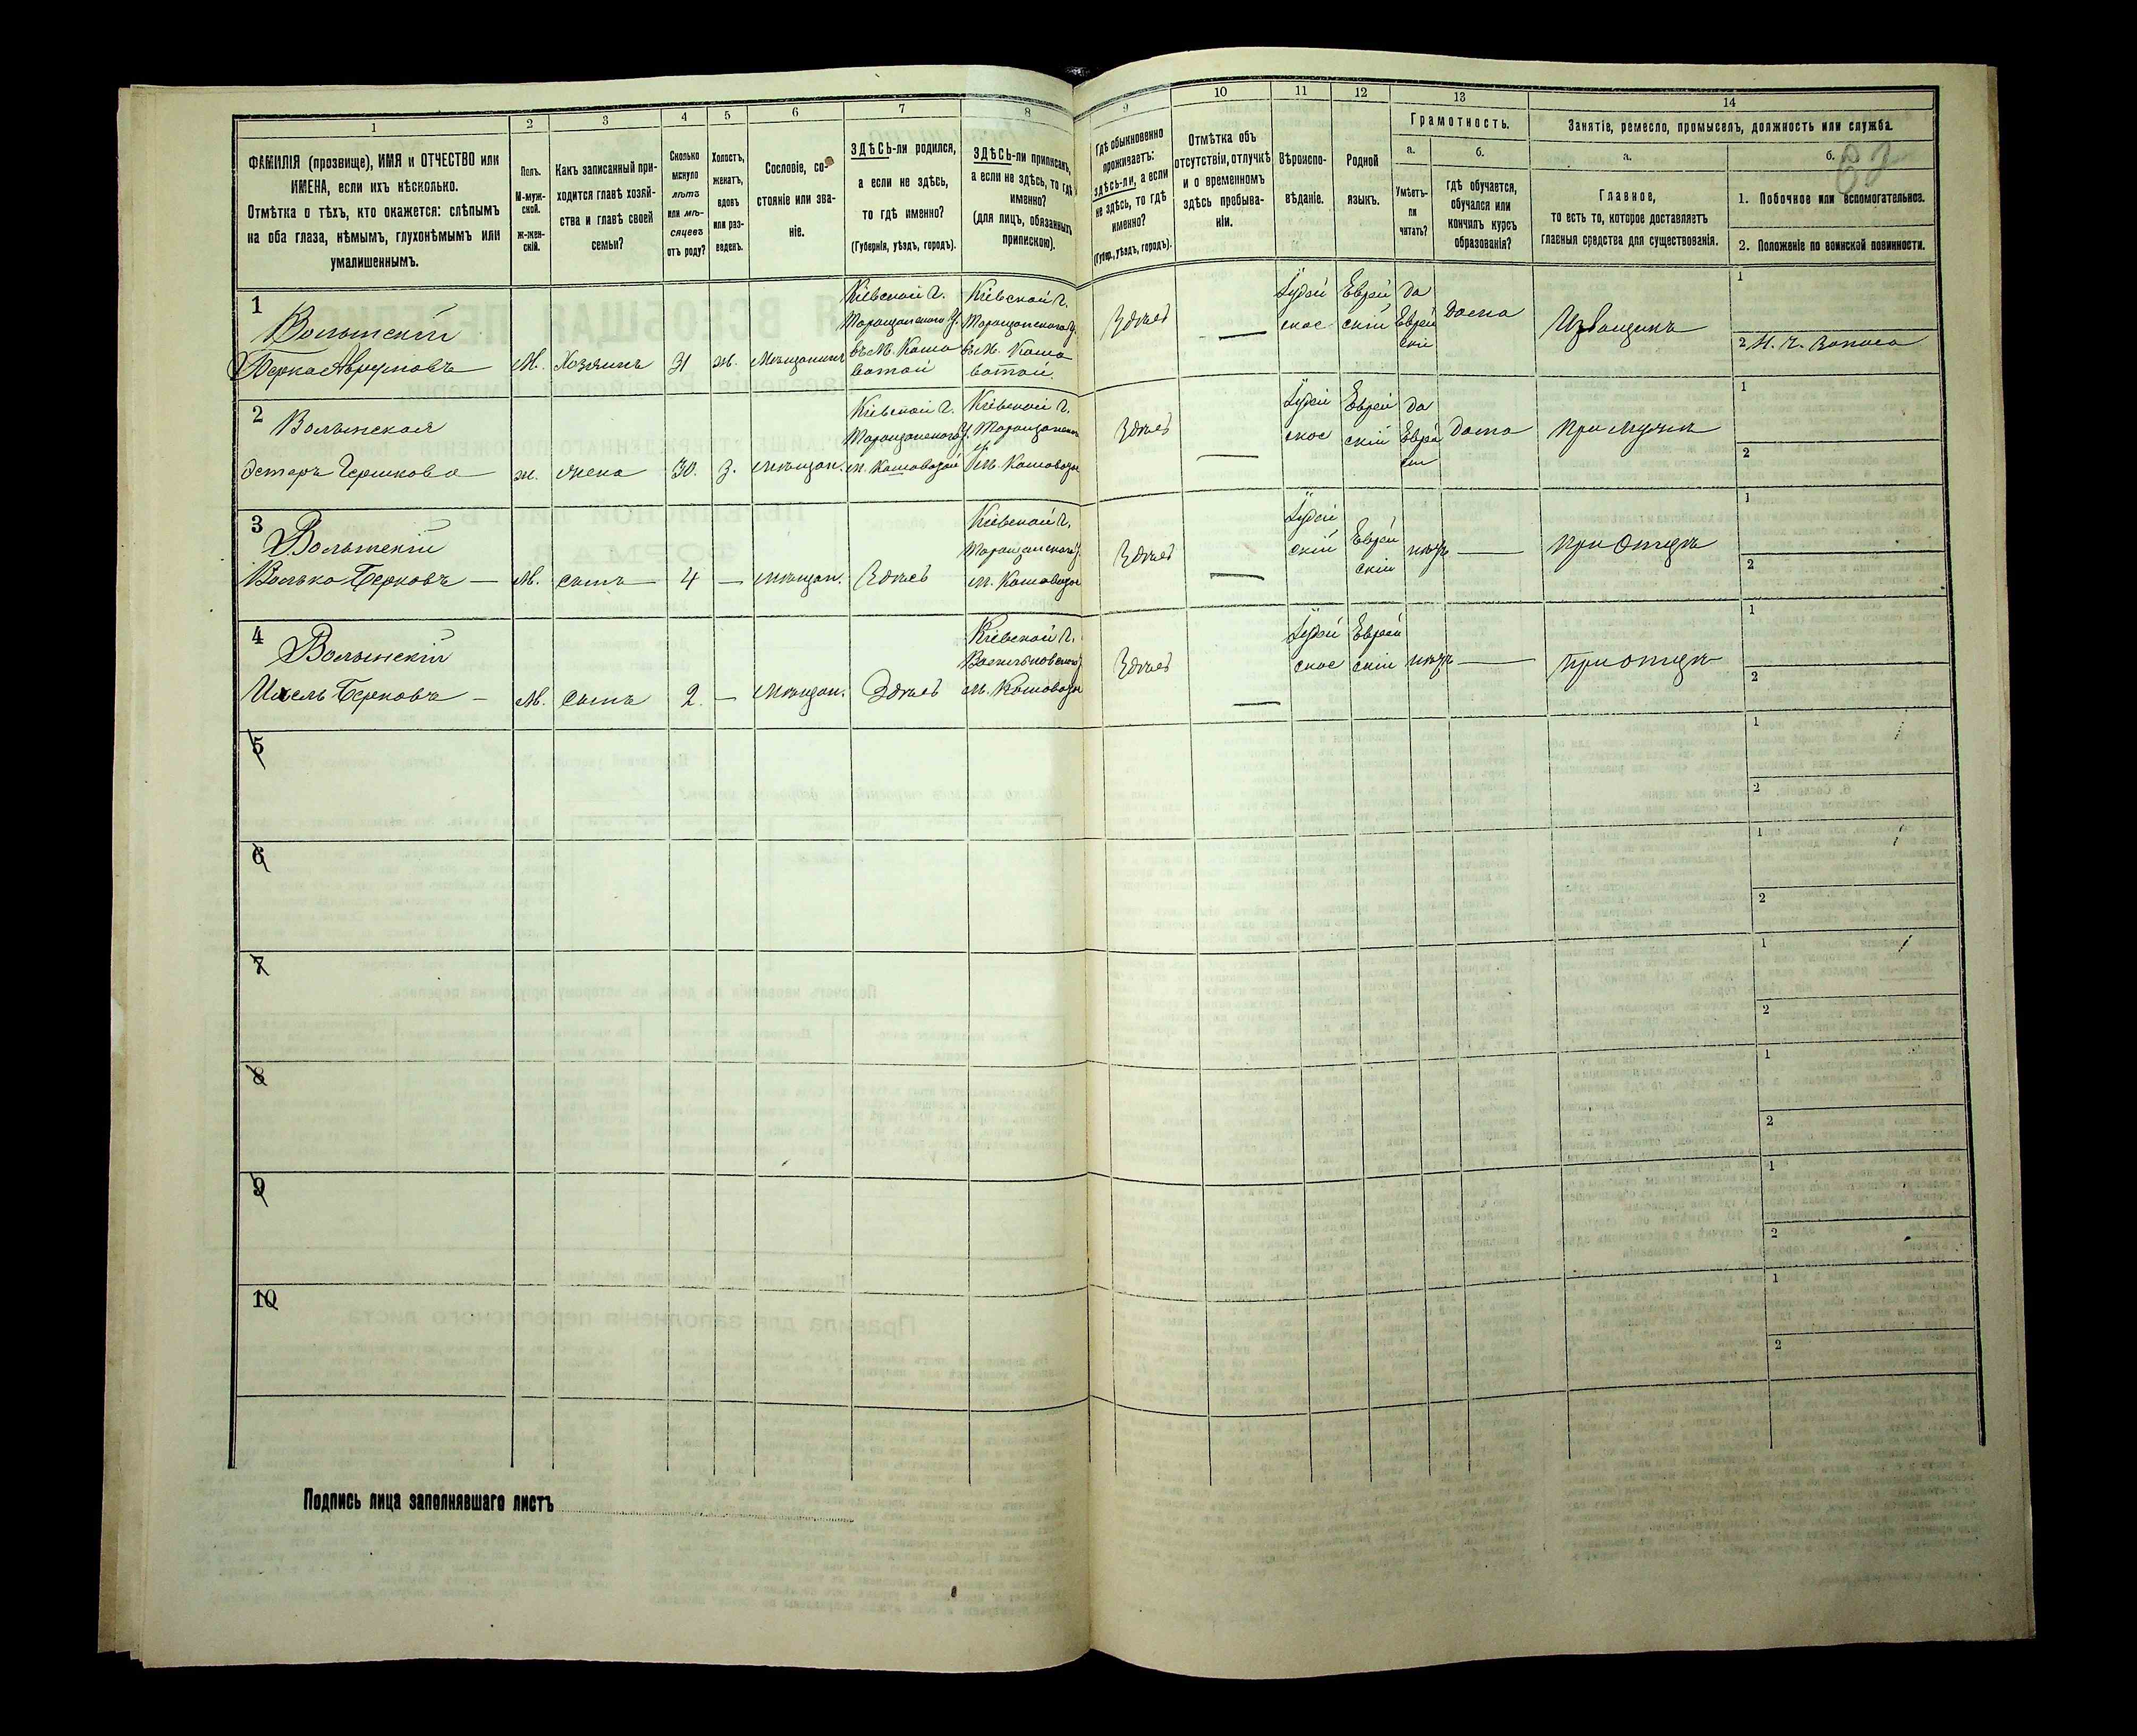 1
2
3
4
5
6
7
8
9
10
11
12
13
14
ФАМИЛІЯ (прозвище), ИМЯ и ОТЧЕСТВО или
ИМЕНА, если ихъ нѣсколько.
Отмѣтка о тѣхъ, кто окажется: слѣпымъ
на оба глаза, нѣмымъ, глухонѣмымъ или
умалишеннымъ.
Полъ.
М-муж-
ской.
Ж-жен-
скій.
Какъ записанный при-
ходится главѣ хозяй-
ства и главѣ своей
семьи?
Сколько
минуло
лѣтъ
или мѣ-
сяцевъ
отъ роду?
Холостъ,
женатъ,
вдовъ
или раз-
веденъ.
Сословіе, со-
стояніе или зва-
ніе.
ЗДѢСЬ-ли родился,
а если не здѣсь,
то гдѣ именно?
(Губернія, уѣздъ, городъ).
ЗДѢСЬ-ли приписанъ,
а если не здѣсь, то гдѣ
именно?
(для лицъ, обязанныхъ
припискою).
Гдѣ обыкновенно
проживаетъ:
здѣсь-ли, а если
не здѣсь, то гдѣ
именно?
(Губер., уѣздъ, городъ).
Отмѣтка объ
отсутствіи, отлучкѣ
и о временномъ
здѣсь пребыва-
ніи.
Вѣроиспо-
вѣданіе.
Родной
языкъ.
Грамотность.
а.
Умѣетъ-
ли
читать?
б.
гдѣ обучается,
обучался или
кончилъ курсъ
образованія?
Занятіе, ремесло, промыселъ, должность или служба.
а.
Главное,
то есть то, которое доставляетъ
главныя средства для существованія.
б.
1. Побочное или вспомогательное.
2. Положеніе по воинской повинности.
1
Волынскій
Берко Аврумовъ
М.
Хозяинъ
31
ж.
Мѣщанинъ
Кіевской г.
Таращанскаго у.
въ М. Кошо
ватой
Кіевской г.
Таращанскаго у.
въ М. Кошо
ватой.
Здѣсь
—
Іудей
ское
Еврей
скій
да
Еврей
скій
Дома
Извощикъ
1
2 Н. Ч. Запаса
2
Волынская
Эстеръ Гершкова
ж.
жена
30.
З.
мѣщан.
Кіевской г.
Таращанскаго у.
м. Кошоватой
Кіевской г.
Таращанск
у.
м. Кошоватой
Здѣсь
—
Іудей
ское
Еврей
скій
да
Еврей
ски
Дома
При мужѣ
1
2
3
Волынскій
Волько Берковъ —
М.
сынъ
4
—
мѣщан.
Здѣсь
Кіевской г.
Таращанскаго у.
м. Кошоватой
Здѣсь
—
Іудей
скій
Еврей
скій
нѣтъ
—
При отцѣ
1
2
4
Волынскій
Ихсель Берковъ —
М.
сынъ
2.
—
мѣщан.
Здѣсь
Кіевской г.
м. Кошоватой
Здѣсь
—
Іудей
ское
Еврей
скій
нѣтъ
—
При отцѣ
1
2
5
1
2
6
1
2
7
1
2
8
1
2
9
1
2
10
1
2
Подпись лица заполнявшаго листъ